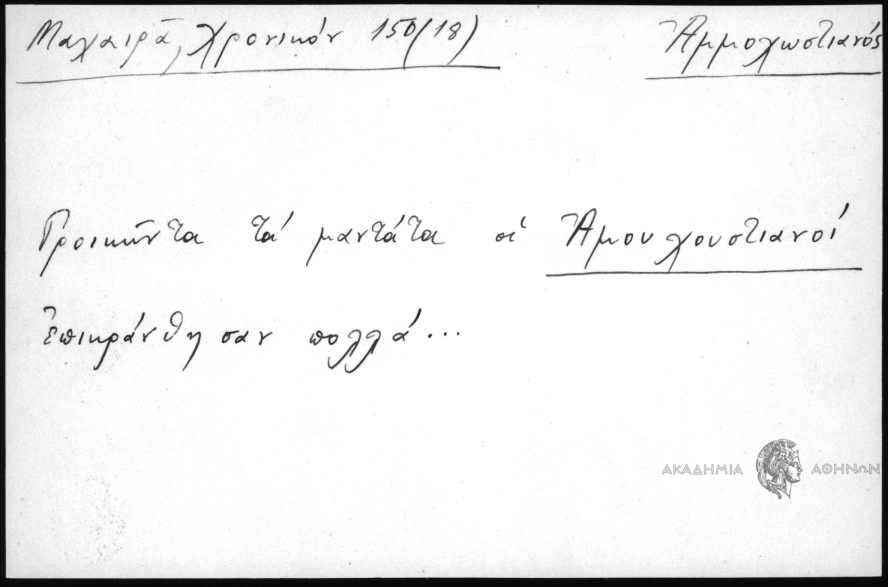 Μαχαιρᾶ, Χρονικόν 150(18)
Ἀμμοχωστιανός
Γροικῶντα τά μαντάτα οἱ Ἀμουχουστιανοί
ἐπικράνθησαν πολλά...
ΑΚΑΔΗΜΙΑ ΑΘΗΝΩΝ